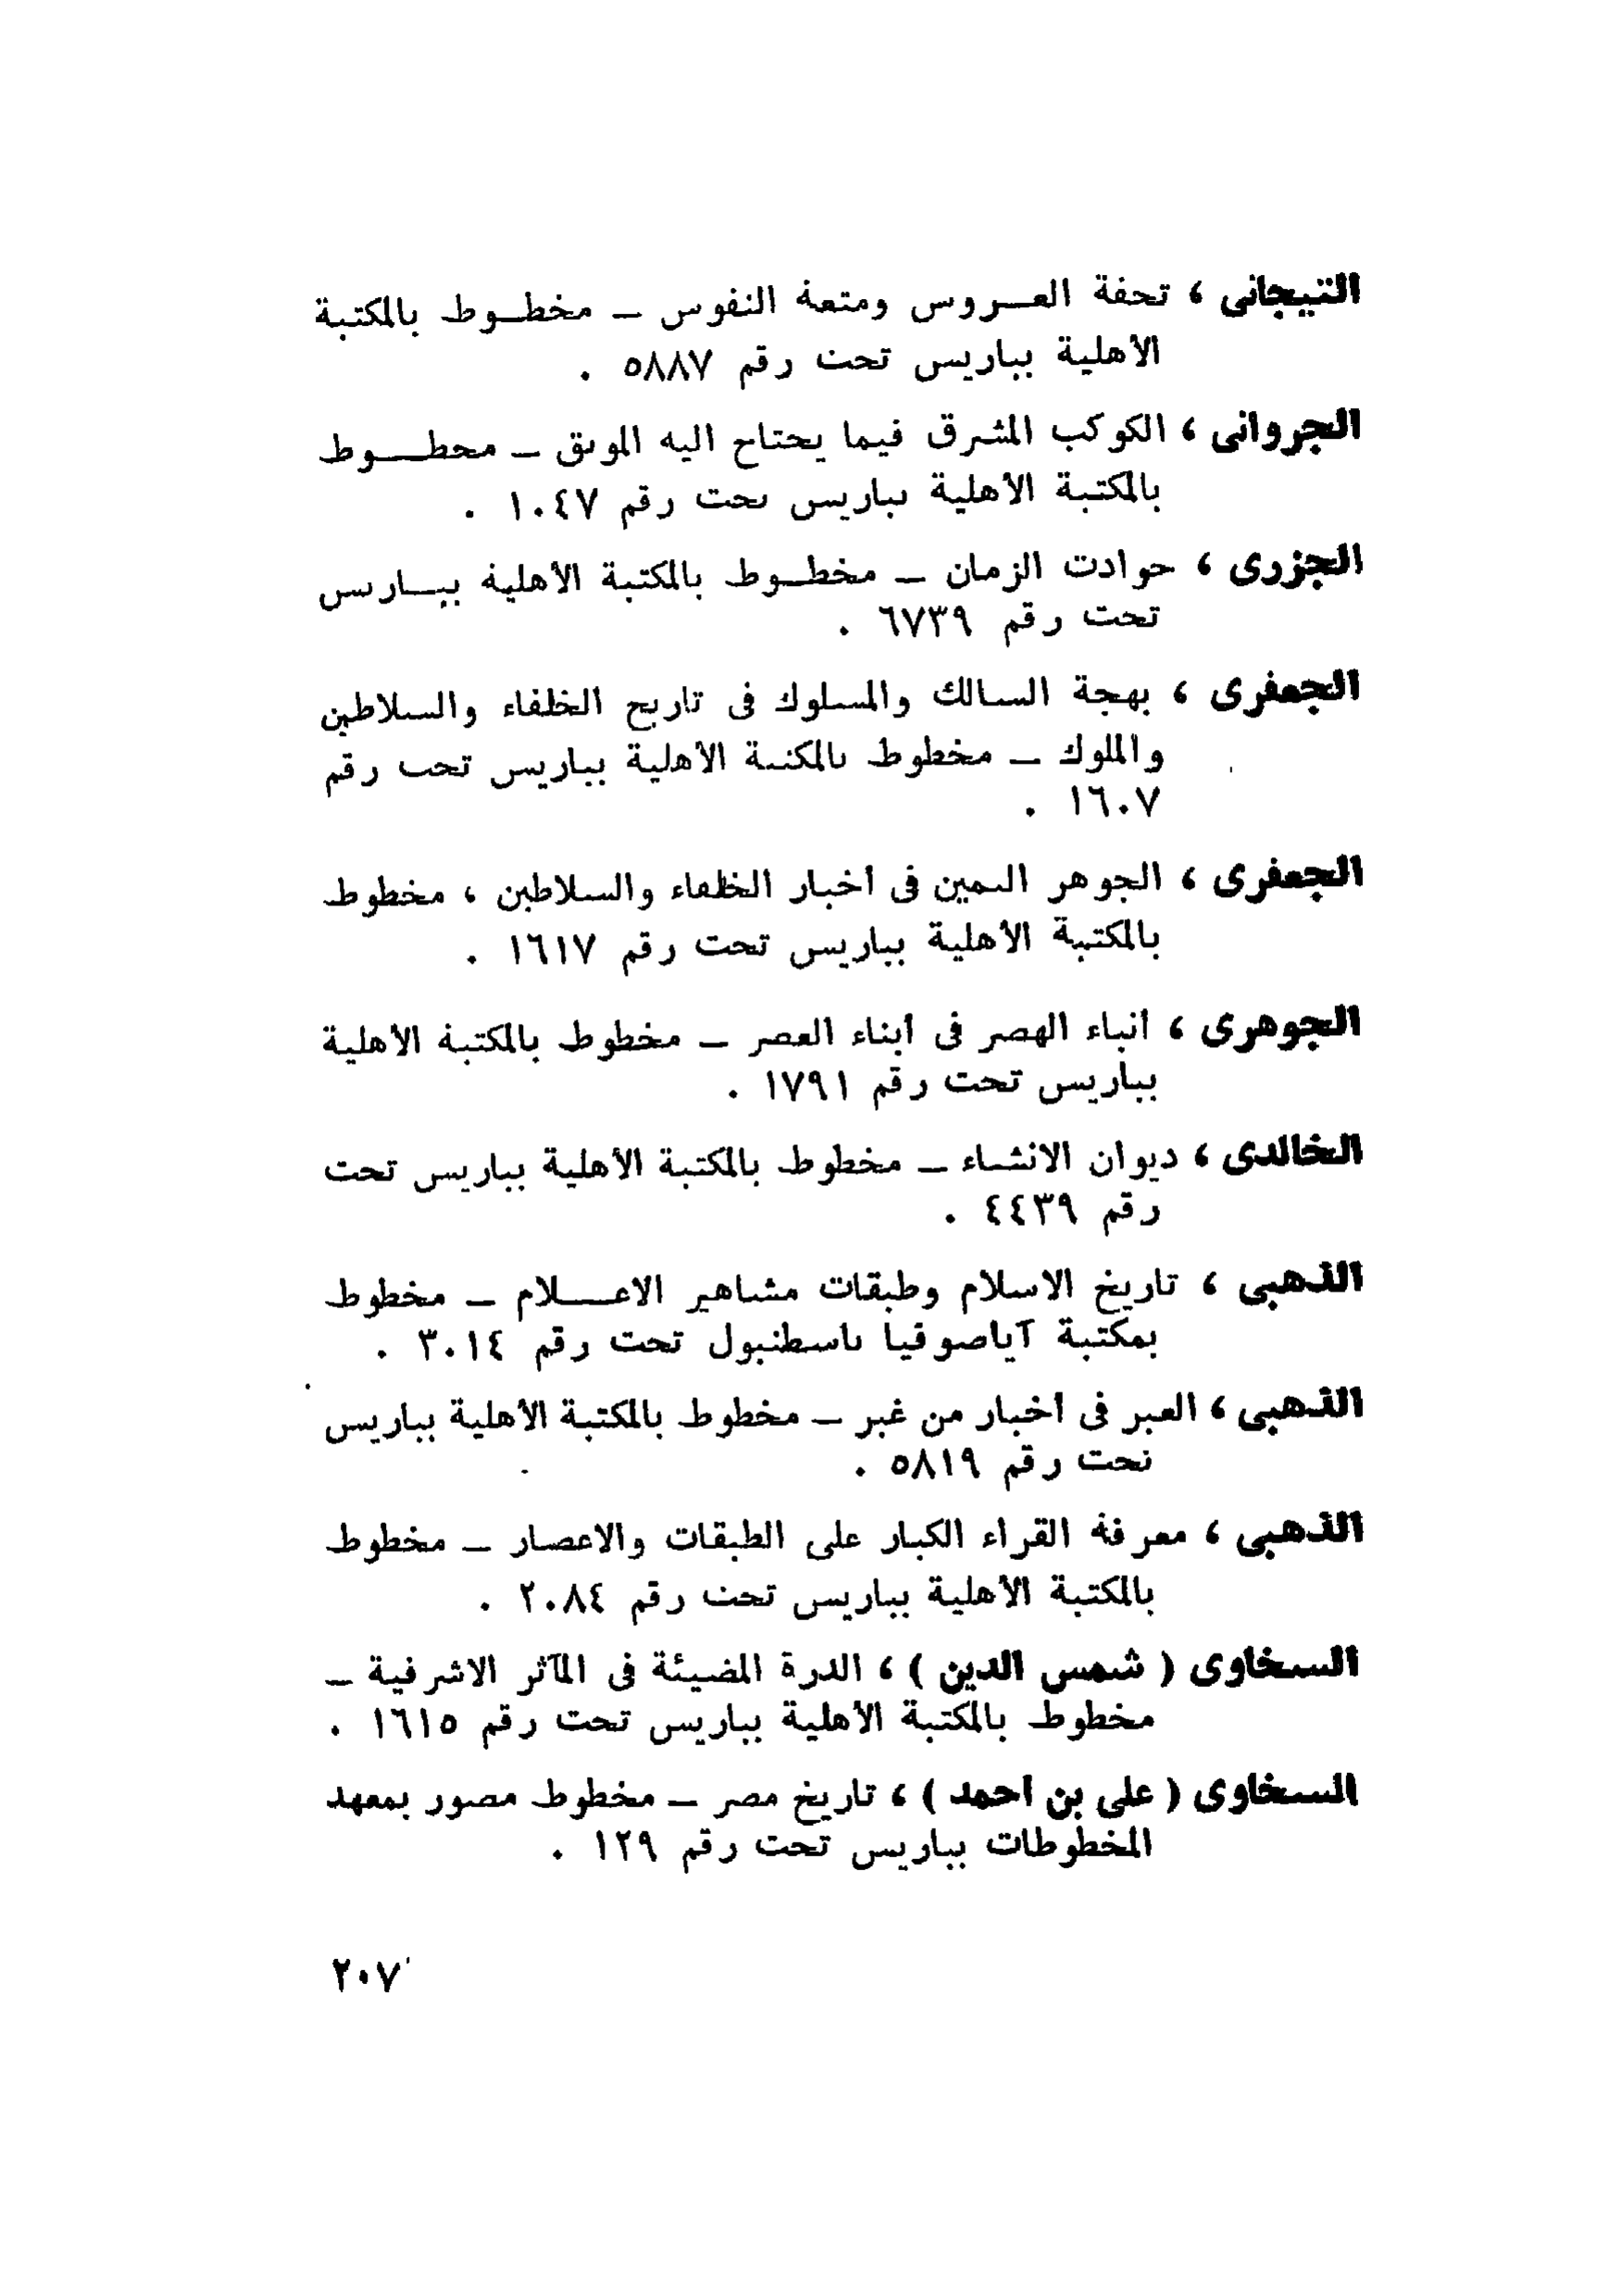 التيجانى ، تحفة العـروس ومتعة النفوس — مخطـوط بالمكتبة
الأهلية بباريس تحت رقم ٥٨٨٧ .
الجروانى ، الكوكب المشرق فيما يحتاج اليه الموثق — مخطـوط
بالمكتبة الأهلية بباريس تحت رقم ١٠٤٧ .
الجزرى ، حوادث الزمان — مخطـوط بالمكتبة الأهلية ببـاريس
تحت رقم ٦٧٣٩ .
الجعفرى ، بهجة السالك والمسلوك فى تاريخ الخلفاء والسلاطين
والملوك — مخطوط بالمكتبة الأهلية بباريس تحت رقم
١٦٠٧ .
الجعفرى ، الجوهر الثمين فى أخبار الخلفاء والسلاطين ، مخطوط
بالمكتبة الأهلية بباريس تحت رقم ١٦١٧ .
الجوهرى ، أنباء الهصر فى أبناء العصر — مخطوط بالمكتبة الأهلية
بباريس تحت رقم ١٧٩١ .
الخالدى ، ديوان الانشاء — مخطوط بالمكتبة الأهلية بباريس تحت
رقم ٤٤٣٩ .
الذهبى ، تاريخ الاسلام وطبقات مشاهير الاعـلام — مخطوط
بمكتبة آياصوفيا باسطنبول تحت رقم ٣٠١٤ .
الذهبى ، العبر فى أخبار من غبر — مخطوط بالمكتبة الأهلية بباريس
تحت رقم ٥٨١٩ .
الذهبى ، معرفة القراء الكبار على الطبقات والاعصار — مخطوط
بالمكتبة الأهلية بباريس تحت رقم ٢٠٨٤ .
السخاوى ( شمس الدين ) ، الدرة المضيئة فى المآثر الاشرفية —
مخطوط بالمكتبة الأهلية بباريس تحت رقم ١٦١٥ .
السخاوى ( على بن أحمد ) ، تاريخ مصر — مخطوط مصور بمعهد
المخطوطات بباريس تحت رقم ١٢٩ .
٢٠٧